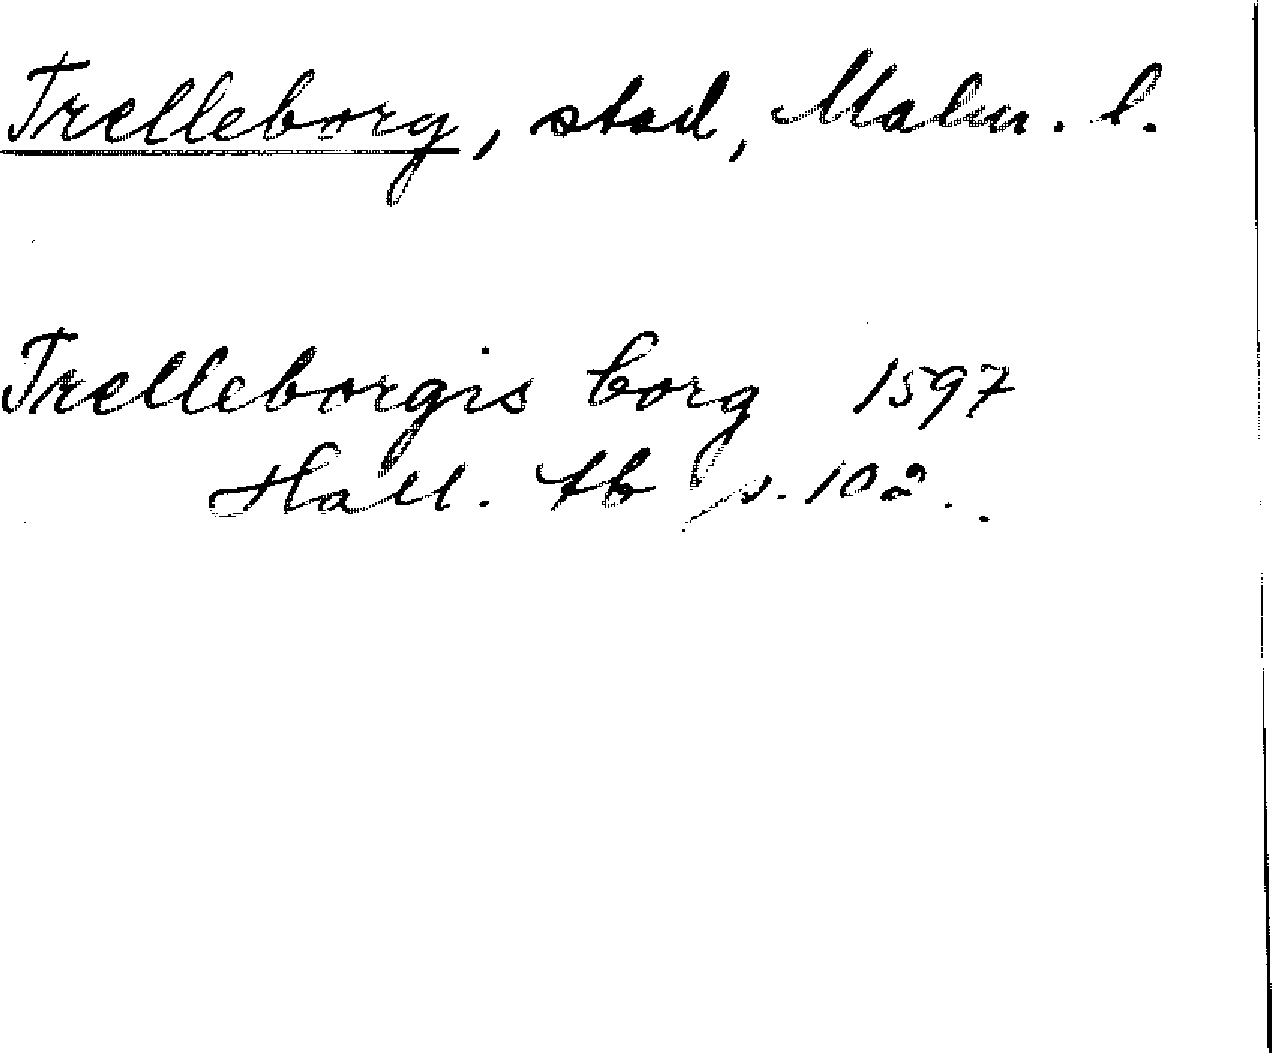 Trelleborg, stad, Malm. l.
Trelleborgis borg 1597
Hall. tb s. 102.